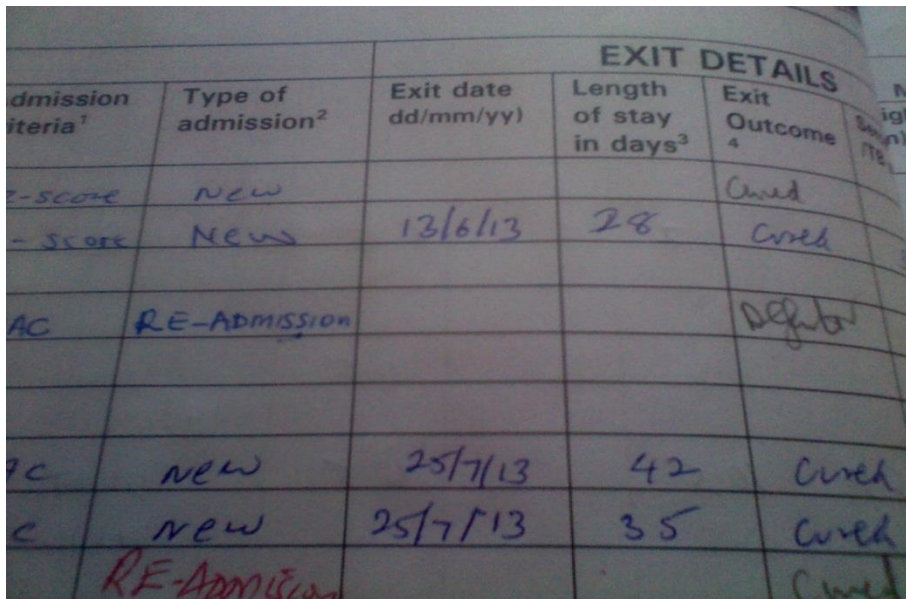 EXIT DETAILS
dmission
iteria¹
Type of
admission²
Exit date
dd/mm/yy)
Length
of stay
in days³
Exit
Outcome
4
z-score New Cured
- score New 13/6/13 28 Cured
AC RE-ADMISSION Defaulter
AC New 25/7/13 42 Cured
C New 25/7/13 35 Cured
RE-ADMISSION Cured